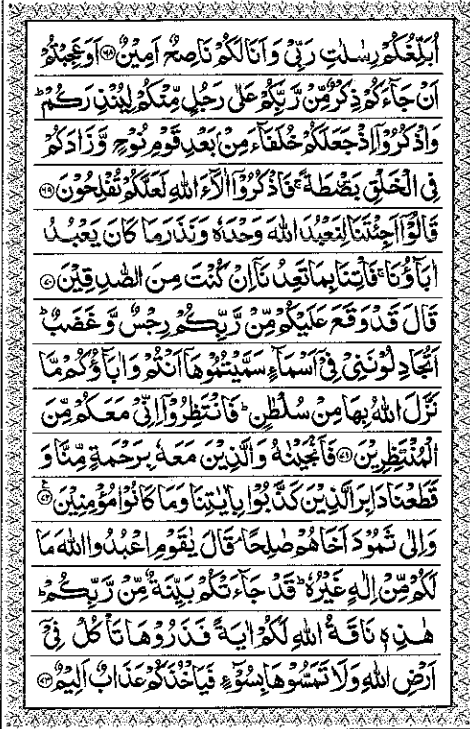 اُبَلِّغُكُمْ رِسٰلٰتِ رَبِّىْ وَاَنَا لَكُمْ نَاصِحٌ اَمِيْنٌ ۝۶۸ اَوَعَجِبْتُمْ
اَنْ جَآءَكُمْ ذِكْرٌ مِّنْ رَّبِّكُمْ عَلٰى رَجُلٍ مِّنْكُمْ لِيُنْذِرَكُمْ ؕ
وَاذْكُرُوْۤا اِذْ جَعَلَكُمْ خُلَفَآءَ مِنْۢ بَعْدِ قَوْمِ نُوْحٍ وَّزَادَكُمْ
فِى الْخَلْقِ بَصْۜطَةً ۚ فَاذْكُرُوْۤا اٰلَآءَ اللّٰهِ لَعَلَّكُمْ تُفْلِحُوْنَ ۝۶۹
قَالُوْۤا اَجِئْتَنَا لِنَعْبُدَ اللّٰهَ وَحْدَهٗ وَنَذَرَ مَا كَانَ يَعْبُدُ
اٰبَآؤُنَا ۚ فَاْتِنَا بِمَا تَعِدُنَاۤ اِنْ كُنْتَ مِنَ الصّٰدِقِيْنَ ۝۷۰
قَالَ قَدْ وَقَعَ عَلَيْكُمْ مِّنْ رَّبِّكُمْ رِجْسٌ وَّغَضَبٌ ؕ
اَتُجَادِلُوْنَنِىْ فِىْۤ اَسْمَآءٍ سَمَّيْتُمُوْهَاۤ اَنْتُمْ وَاٰبَآؤُكُمْ مَّا
نَزَّلَ اللّٰهُ بِهَا مِنْ سُلْطٰنٍ ؕ فَانْتَظِرُوْۤا اِنِّىْ مَعَكُمْ مِّنَ
الْمُنْتَظِرِيْنَ ۝۷۱ فَاَنْجَيْنٰهُ وَالَّذِيْنَ مَعَهٗ بِرَحْمَةٍ مِّنَّا وَ
قَطَعْنَا دَابِرَ الَّذِيْنَ كَذَّبُوْا بِاٰيٰتِنَا وَمَا كَانُوْا مُؤْمِنِيْنَ ۝۷۲
وَاِلٰى ثَمُوْدَ اَخَاهُمْ صٰلِحًا ۘ قَالَ يٰقَوْمِ اعْبُدُوا اللّٰهَ مَا
لَكُمْ مِّنْ اِلٰهٍ غَيْرُهٗ ؕ قَدْ جَآءَتْكُمْ بَيِّنَةٌ مِّنْ رَّبِّكُمْ ؕ
هٰذِهٖ نَاقَةُ اللّٰهِ لَكُمْ اٰيَةً فَذَرُوْهَا تَاْكُلْ فِىْۤ
اَرْضِ اللّٰهِ وَلَا تَمَسُّوْهَا بِسُوْٓءٍ فَيَاْخُذَكُمْ عَذَابٌ اَلِيْمٌ ۝۷۳